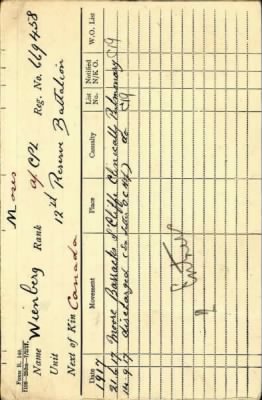 Form R. 149
Moses
Name Wienberg Rank A/Cpl Reg. No. 669458
Unit 12th Reserve Battalion
Next of Kin Canada
Date Movement Place Casualty List No. Notified N/K O. W.O. List
1917
21.6.17 Moore Barracks Clinically Pulmonary C19
14.9.17 discharged do C19